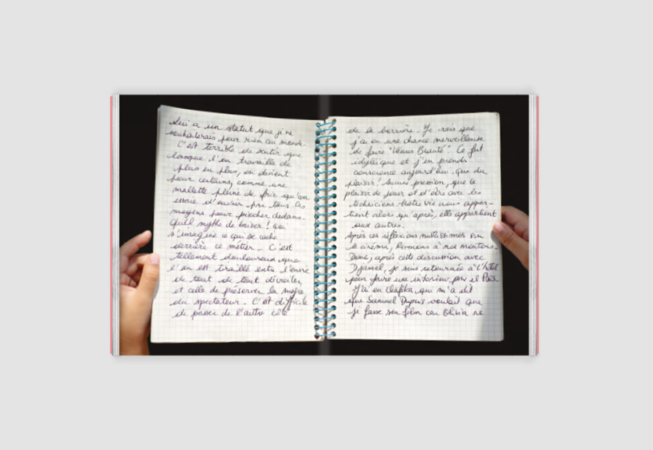 qui a un statut que j'ai
souhaiterais pour rien au monde
C'est terrible de sentir que
lorsque l'on travaille de
plus en plus, on devient
pour certains comme une
mallette pleine de fric qu'on
essaie d'ouvrir par tous les
moyens pour piocher dedans.
Quel mythe de baiser ! on
s'imagine ce qui se cache
derrière ce métier. C'est
tellement douloureux que
l'on est tiraillé entre l'envie
de tout de tout dévoiler
et celle de préserver la magie
du spectateur. C'est difficile
de passer de l'autre côté
de la barrière. Je crois que
j'ai eu une chance merveilleuse
de faire "Vénus Beauté". Ce fut
idyllique et j'en prends
conscience aujourd'hui. Que du
plaisir ! Aucune pression, que le
plaisir de jouer et d'être avec les
techniciens. Notre vie nous appar-
tient alors qu'après, elle appartient
aux autres.
Après ces réflexions
le cinéma, revenons à nos moutons.
Donc, après cette discussion avec
Djamel, je suis retournée à l'hôtel
pour faire une interview
J'ai eu Claudia qui m'a dit
que Samuel Dupuis voulait que
je fasse son film car Olivia ne